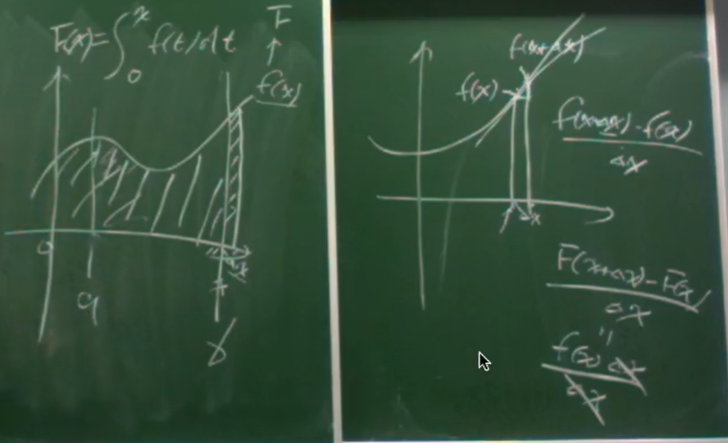 F(x)=∫₀ˣ f(t)dt
F
↑
f(x)
0
a
Δx
x
b
f(x+Δx)
f(x)
Δx
f(x+Δx)-f(x)
Δx
F(x+Δx)-F(x)
Δx
"
f(x) Δx
Δx